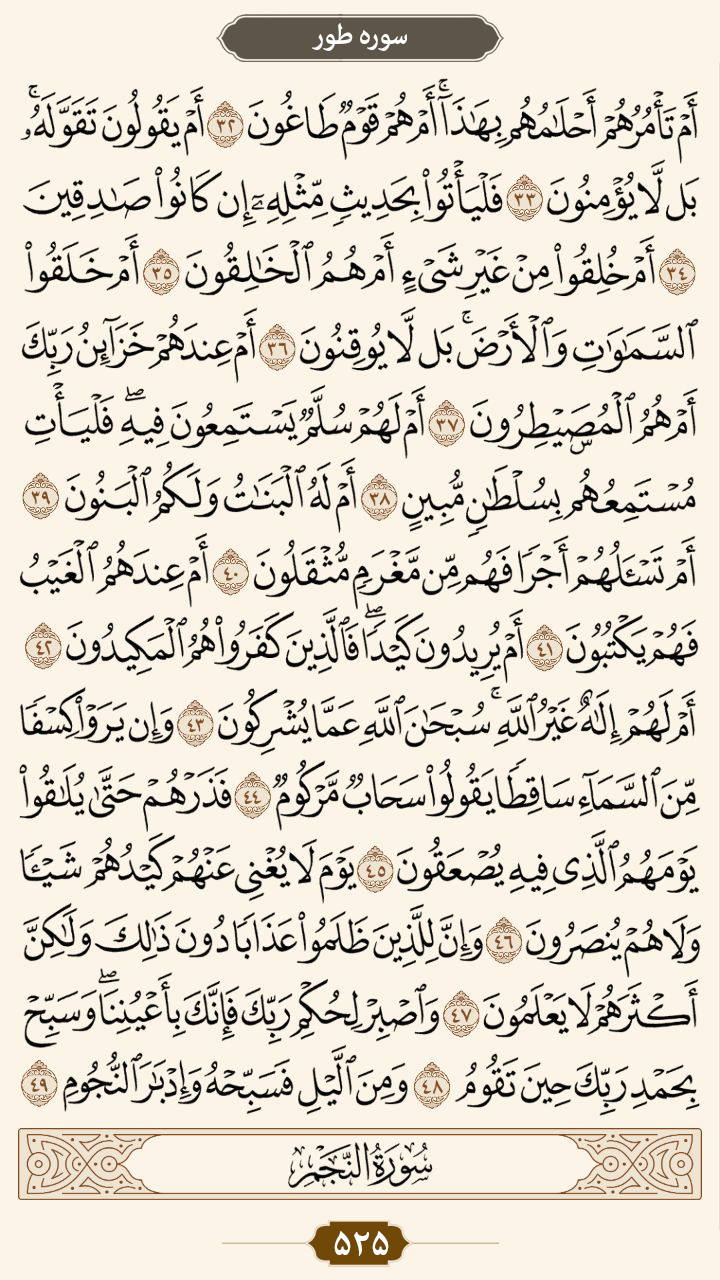 سوره طور
أَمْ تَأْمُرُهُمْ أَحْلَٰمُهُم بِهَٰذَآۚ أَمْ هُمْ قَوْمٌ طَاغُونَ ٣٢ أَمْ يَقُولُونَ تَقَوَّلَهُۥۚ
بَل لَّا يُؤْمِنُونَ ٣٣ فَلْيَأْتُوا۟ بِحَدِيثٍ مِّثْلِهِۦٓ إِن كَانُوا۟ صَٰدِقِينَ
٣٤ أَمْ خُلِقُوا۟ مِنْ غَيْرِ شَىْءٍ أَمْ هُمُ ٱلْخَٰلِقُونَ ٣٥ أَمْ خَلَقُوا۟
ٱلسَّمَٰوَٰتِ وَٱلْأَرْضَۚ بَل لَّا يُوقِنُونَ ٣٦ أَمْ عِندَهُمْ خَزَآئِنُ رَبِّكَ
أَمْ هُمُ ٱلْمُصَۣيْطِرُونَ ٣٧ أَمْ لَهُمْ سُلَّمٌ يَسْتَمِعُونَ فِيهِۖ فَلْيَأْتِ
مُسْتَمِعُهُم بِسُلْطَٰنٍ مُّبِينٍ ٣٨ أَمْ لَهُ ٱلْبَنَٰتُ وَلَكُمُ ٱلْبَنُونَ ٣٩
أَمْ تَسْـَٔلُهُمْ أَجْرًا فَهُم مِّن مَّغْرَمٍ مُّثْقَلُونَ ٤٠ أَمْ عِندَهُمُ ٱلْغَيْبُ
فَهُمْ يَكْتُبُونَ ٤١ أَمْ يُرِيدُونَ كَيْدًاۖ فَٱلَّذِينَ كَفَرُوا۟ هُمُ ٱلْمَكِيدُونَ ٤٢
أَمْ لَهُمْ إِلَٰهٌ غَيْرُ ٱللَّهِۚ سُبْحَٰنَ ٱللَّهِ عَمَّا يُشْرِكُونَ ٤٣ وَإِن يَرَوْا۟ كِسْفًا
مِّنَ ٱلسَّمَآءِ سَاقِطًا يَقُولُوا۟ سَحَابٌ مَّرْكُومٌ ٤٤ فَذَرْهُمْ حَتَّىٰ يُلَٰقُوا۟
يَوْمَهُمُ ٱلَّذِى فِيهِ يُصْعَقُونَ ٤٥ يَوْمَ لَا يُغْنِى عَنْهُمْ كَيْدُهُمْ شَيْـًٔا
وَلَا هُمْ يُنصَرُونَ ٤٦ وَإِنَّ لِلَّذِينَ ظَلَمُوا۟ عَذَابًا دُونَ ذَٰلِكَ وَلَٰكِنَّ
أَكْثَرَهُمْ لَا يَعْلَمُونَ ٤٧ وَٱصْبِرْ لِحُكْمِ رَبِّكَ فَإِنَّكَ بِأَعْيُنِنَاۖ وَسَبِّحْ
بِحَمْدِ رَبِّكَ حِينَ تَقُومُ ٤٨ وَمِنَ ٱلَّيْلِ فَسَبِّحْهُ وَإِدْبَٰرَ ٱلنُّجُومِ ٤٩
سُورَةُ النَّجْمِ
۵۲۵